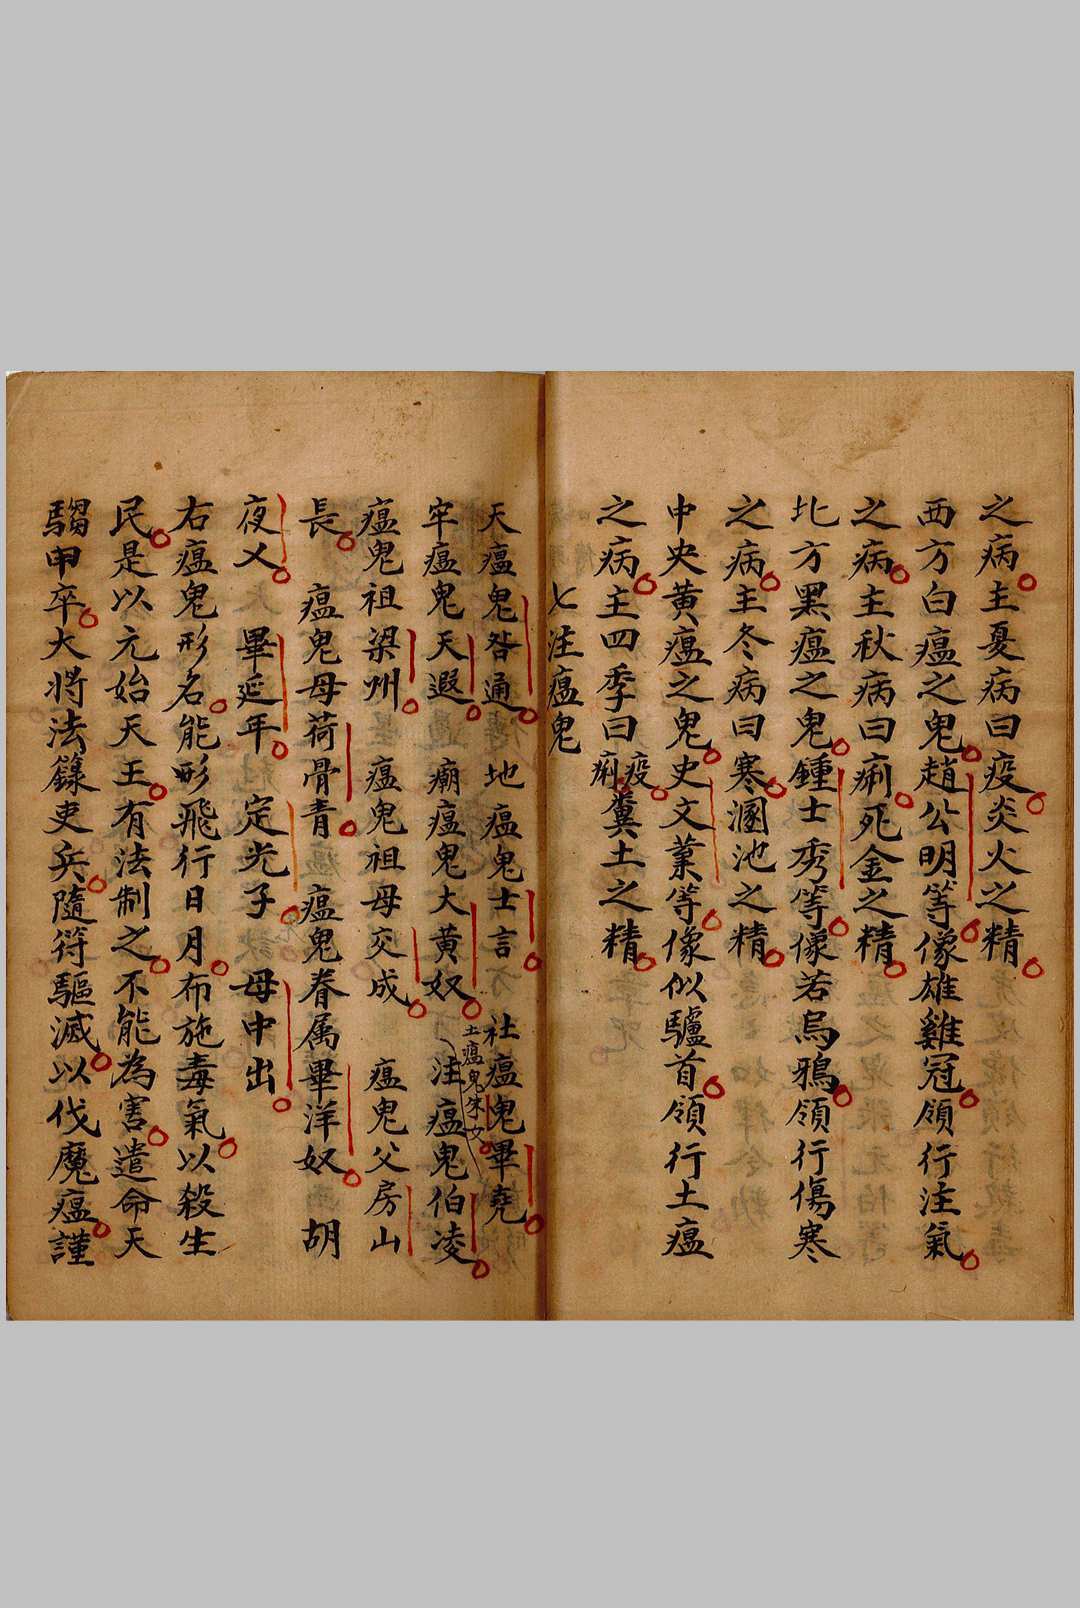 之病主夏病曰疫炎火之精
西方白瘟之鬼趙公明等像雄雞冠領行注氣
之病主秋病曰痢死金之精
北方黑瘟之鬼鍾士秀等像若烏鴉領行傷寒
之病主冬病曰寒溷池之精
中央黃瘟之鬼史文葉等像似驢首領行土瘟
之病主四季曰疫痢糞土之精
七注瘟鬼
天瘟鬼咎通 地瘟鬼士言 社瘟鬼畢堯
土瘟鬼朱女
牢瘟鬼天遐 廟瘟鬼大黃奴 注瘟鬼伯凌
瘟鬼祖梁州 瘟鬼祖母交成 瘟鬼父房山
長 瘟鬼母荷骨青 瘟鬼眷属畢洋奴 胡
夜乂 畢延年 定光子 母中出
右瘟鬼形名能形飛行日月布施毒氣以殺生
民是以元始天王有法制之不能為害遣命天
騶甲卒大將法籙吏兵隨符驅滅以伐魔瘟謹